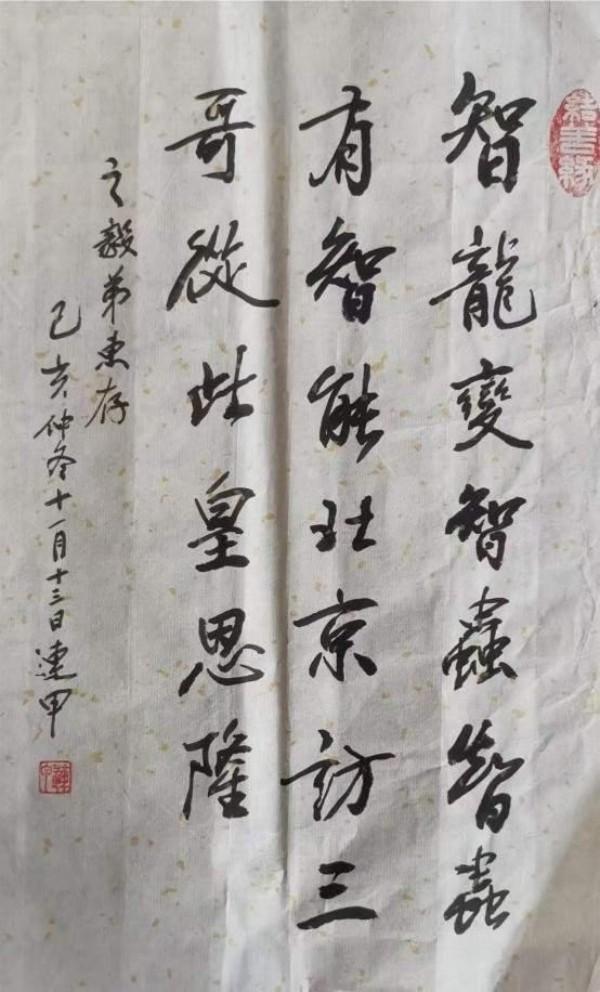 智龍變智蟲智蟲
有智能壯京訪三
哥從此皇恩隆
之毅弟惠存
己亥仲冬十一月十三日連甲
結善緣